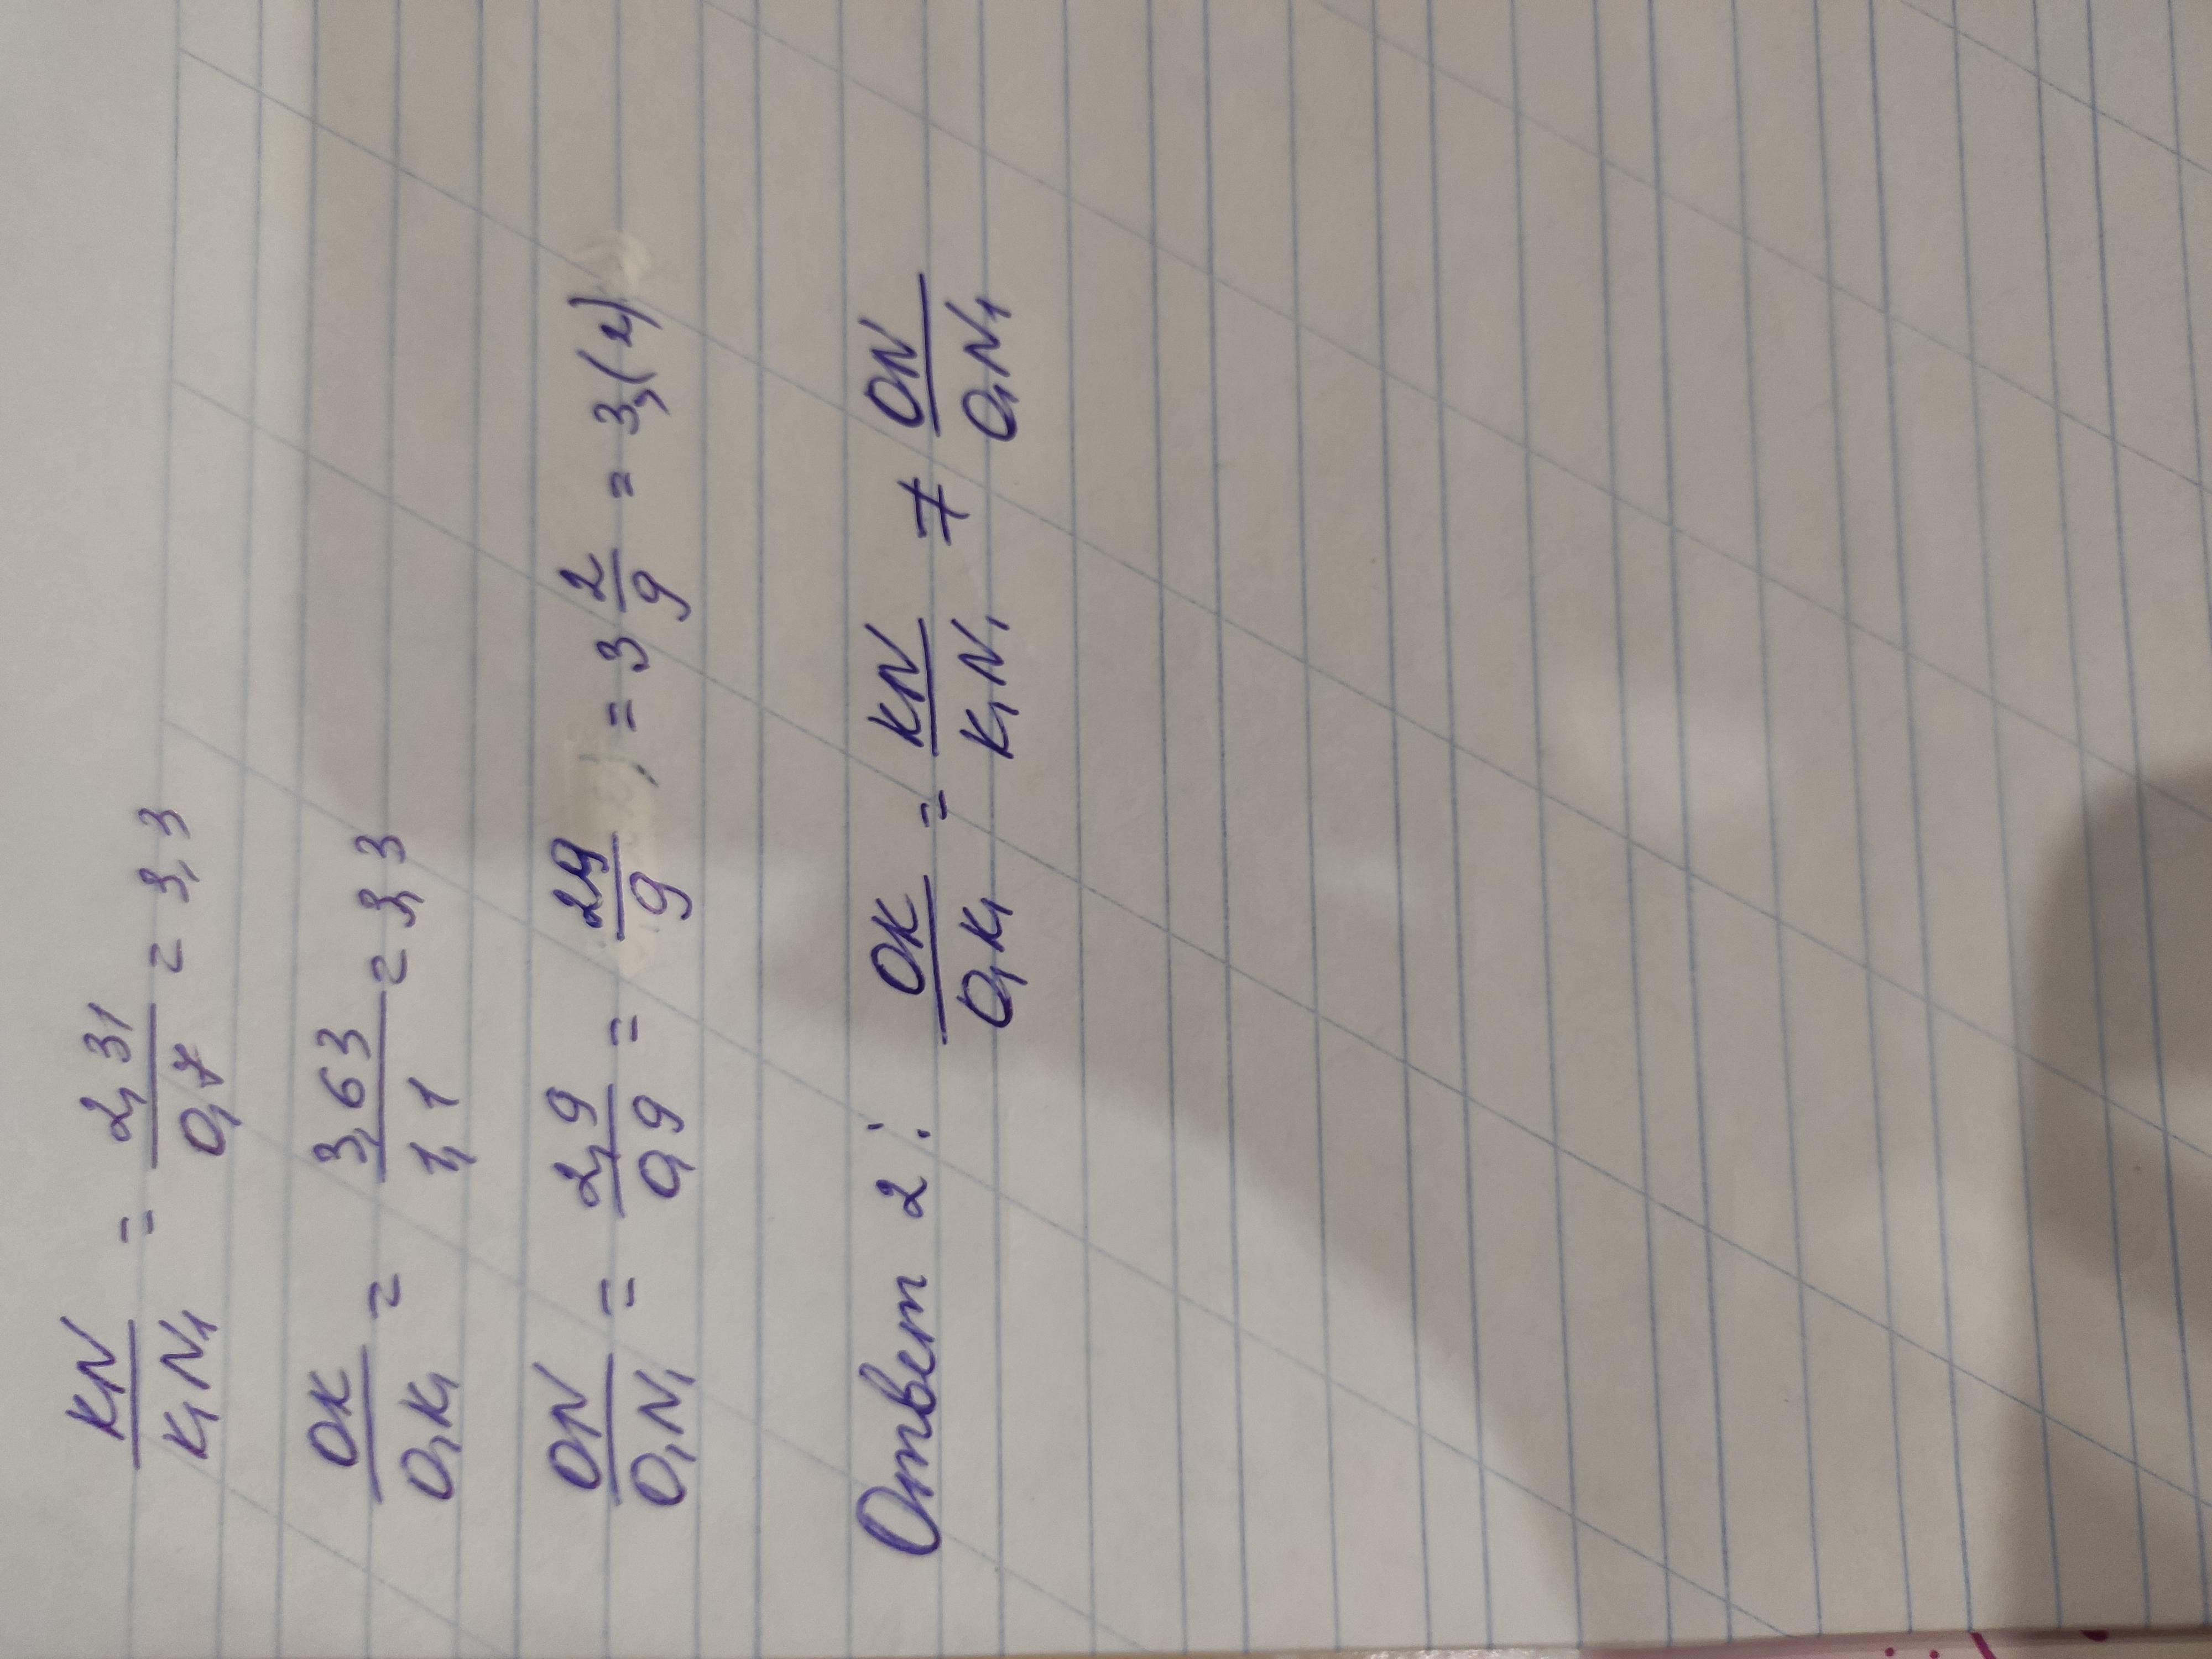 KN/K₁N₁ = 2,31/0,7 = 3,3
OK/O₁K₁ = 3,63/1,1 = 3,3
ON/O₁N₁ = 2,9/0,9 = 29/9 = 3 2/9 = 3,(2)
Ответ 2: OK/O₁K₁ = KN/K₁N₁ ≠ ON/O₁N₁